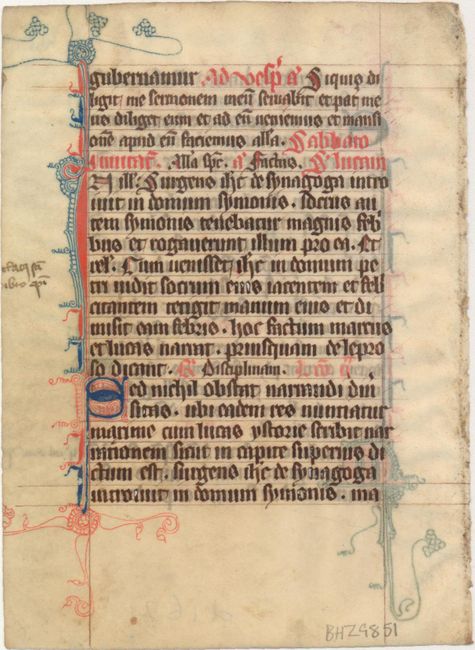 gubernamur Ad vesp̄ a͞ Siquis di
ligit me sermonem meū seruabit et pat̄ me
us diliget eum et ad eū ueniemus et mansi
onē apud eū faciemus alla. Sabbato
Alla sp̄c. a͞ Factus. S͞ lucam
In ill̄. Surgens ih̄c de synagoga intro
iuit in domum symonis. Socrus au
tem symonis tenebatur magnis feb
bus et rogauerunt illum pro ea. Et
rel̄. Cum uenisset ih̄c in domum pe
tri uidit socrum eius iacentem et feb
citantem tetigit manum eius et di
misit eam febris. hoc factum marcus
et lucas narrat. priusquam de lepro
so dicant. R͞ Disciplinam.
Sed nichil obstat narrandi diu̾
sitas. ubi eadem res nunciatur
maxime cum lucas ystorie scribit nar
rationem sicut in capite superius di
ctum est. surgens ih̄c de synagoga
introiuit in domum symonis. ma
BHZ9851